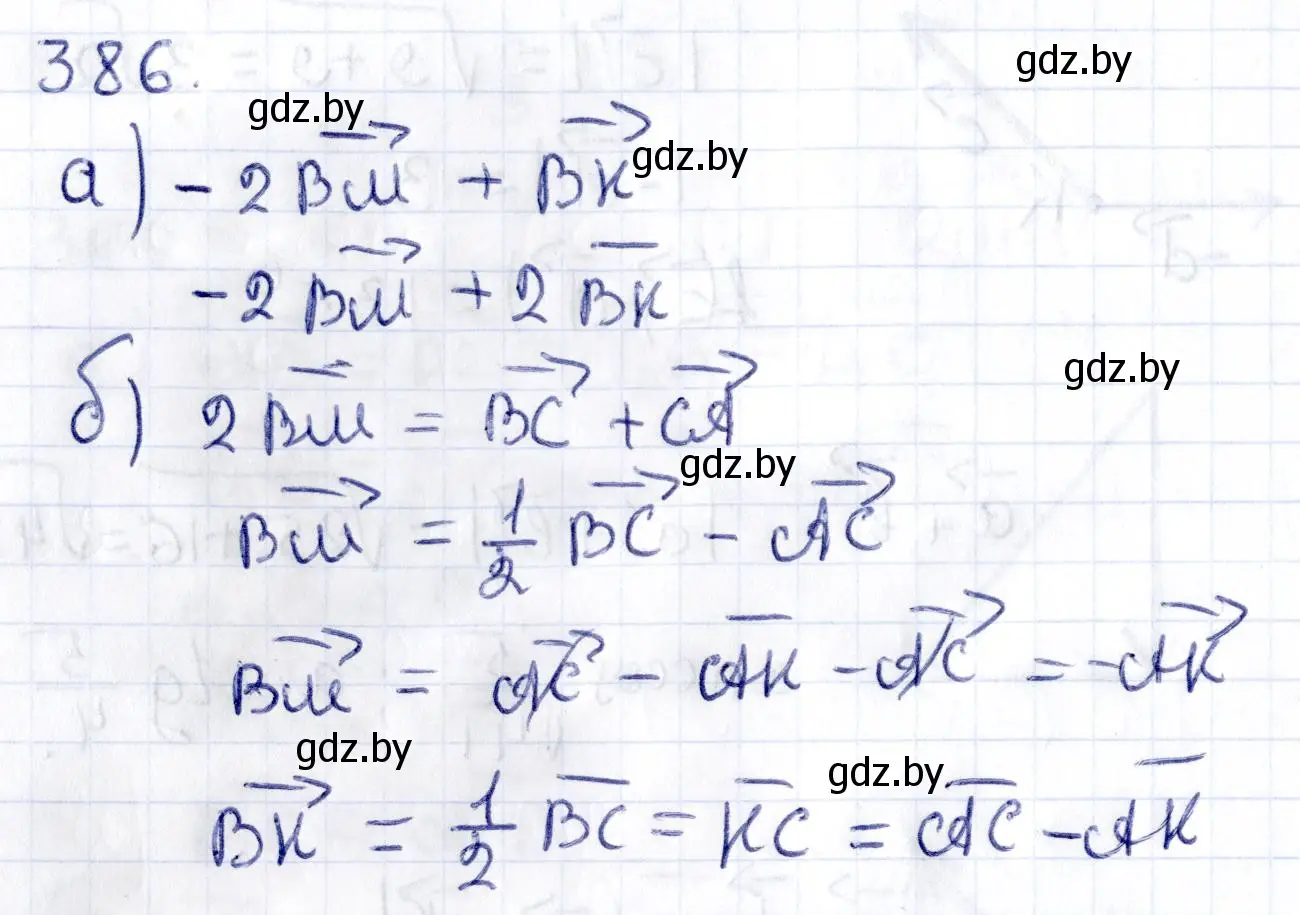 386.
gdz.by
gdz.by
а) - 2 \overrightarrow{BM} + \overrightarrow{BK}
gdz.by
- 2 \overrightarrow{BM} + 2 \overline{BK}
gdz.by
б) 2 \overline{BM} = \overrightarrow{BC} + \overrightarrow{CA}
gdz.by
\overrightarrow{BM} = \frac{1}{2} \overrightarrow{BC} - \overrightarrow{AC}
\overrightarrow{BM} = \overrightarrow{AC} - \overline{AK} - \overrightarrow{AC} = - \overrightarrow{AK}
gdz.by
gdz.by
\overrightarrow{BK} = \frac{1}{2} \overline{BC} = \overline{KC} = \overline{AC} - \overline{AK}